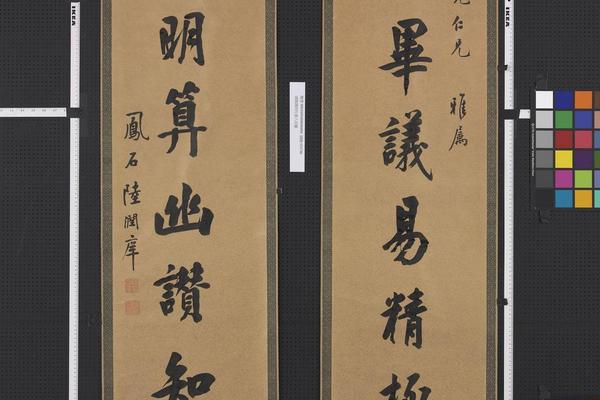 仁兄 雅属
畢議易精極
明算幽讚知
鳳石陸潤庠
IKEA
IKEA